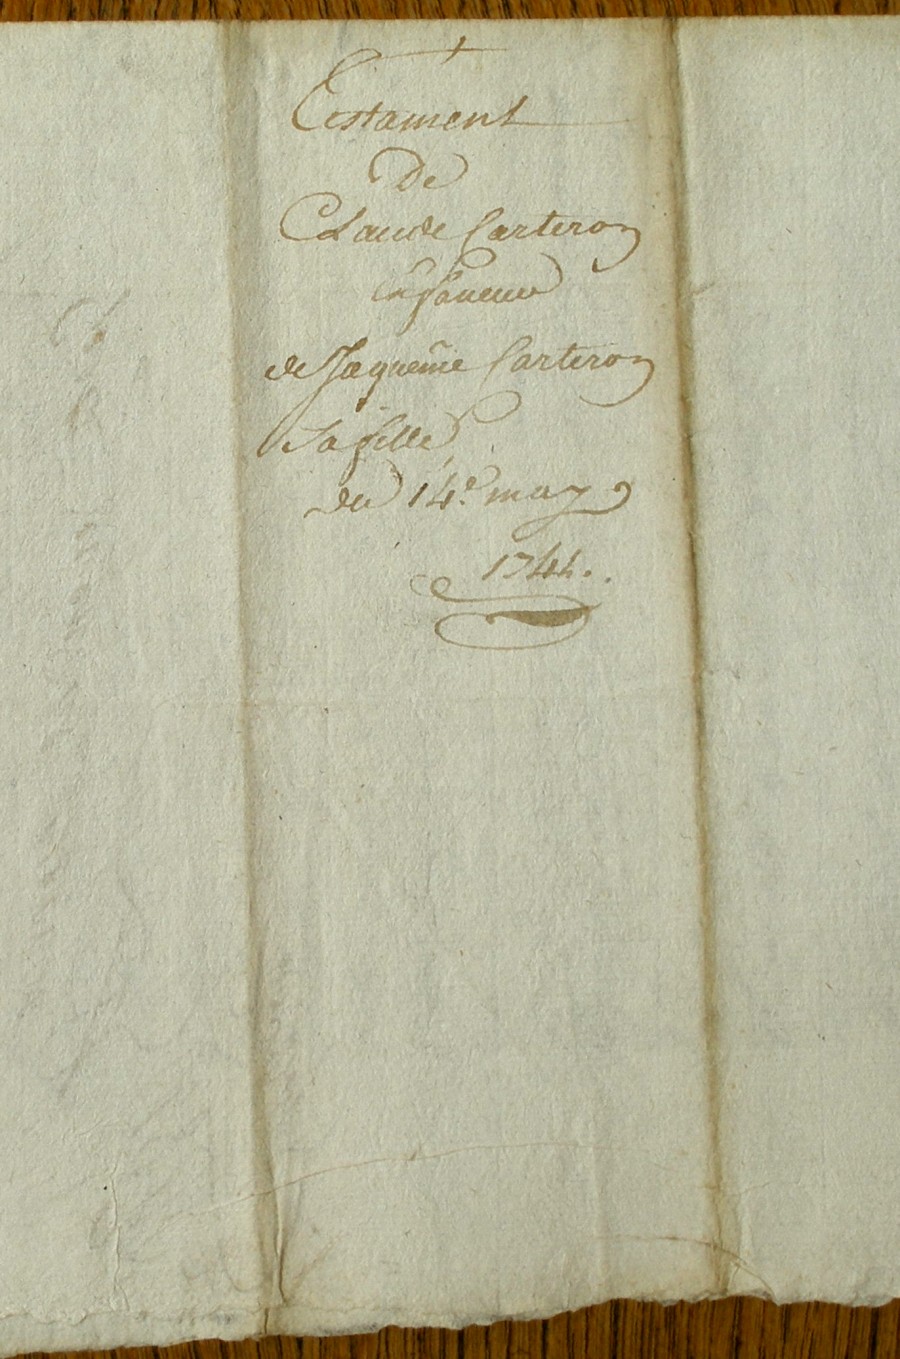 Testament
De
Claude Carteron
En faveur
de Jaqueme Carteron
Sa fille
du 14.e may
1744.